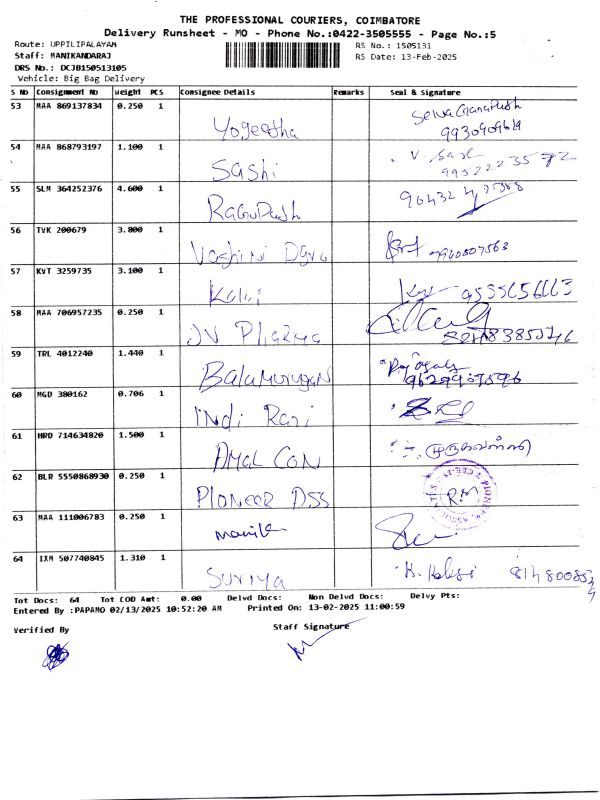 THE PROFESSIONAL COURIERS, COIMBATORE
Delivery Runsheet - MO - Phone No.:0422-3505555 - Page No.:5
Route: UPPILIPALAYAM
RS No.: 1505131
Staff: MANIKANDARAJ
RS Date: 13-Feb-2025
DRS No.: DCJB150513105
Vehicle: Big Bag Delivery
S No Consignment No Weight PCS Consignee Details Remarks Seal & Signature
53 MAA 869137834 0.250 1 Yogeetha
54 MAA 868793197 1.100 1 Sashi
55 SLM 364252376 4.600 1 RaguPath
56 TVK 200679 3.800 1 Vashini 9940807563
57 KVT 3259735 3.100 1 Kalai 9535656663
58 MAA 706957235 0.250 1 JV Pharma
59 TRL 4012240 1.440 1 Balamurugan
60 MGD 380162 0.706 1 Indi Rani
61 HRD 714634820 1.500 1 Amal Con
62 BLR 5550868930 0.250 1 Pioneer Ass
63 MAA 111006783 0.250 1 manik
64 IXM 507740845 1.310 1 Suriya
Tot Docs: 64 Tot COD Amt: 0.00 Delvd Docs: Non Delvd Docs: Delvy Pts:
Entered By :PAPAMO 02/13/2025 10:52:20 AM Printed On: 13-02-2025 11:00:59
Verified By Staff Signature